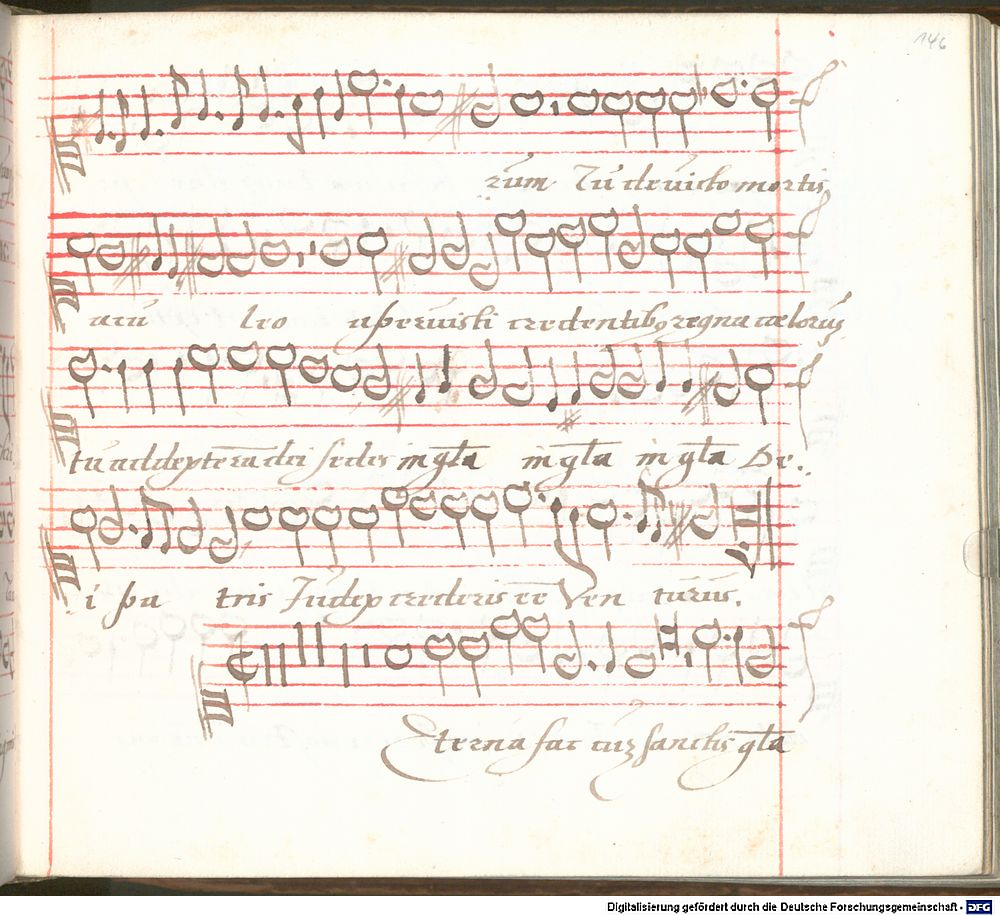 146
rum Tu devicto mortis
acu leo aperuisti credentibꝰ regna cœlorū
tu ad dexterā dei sedes in gl̄a in gl̄a in gl̄a De
i pa tris Judex crederis eē Ven turus.
Eterna fac cūʒ sanctis gl̄a
Digitalisierung gefördert durch die Deutsche Forschungsgemeinschaft - DFG